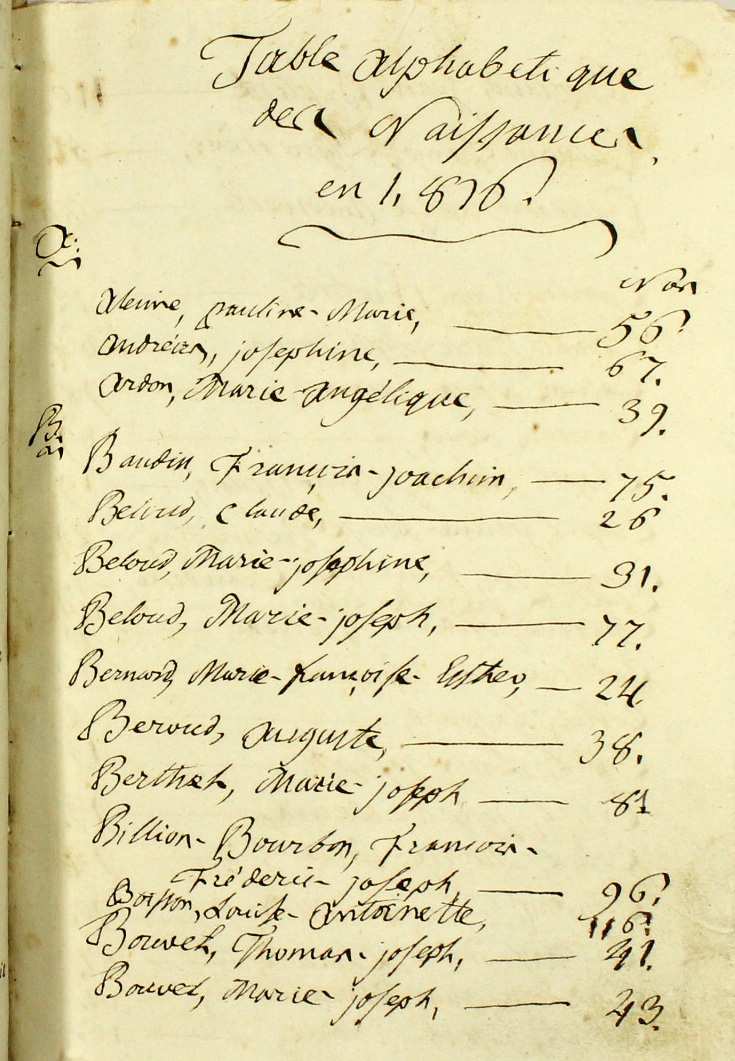 Table alphabetique
des Naissances
en 1,836.
A.
Nos
pauline-Marie, 56.
andréïs, josephine, 67.
ardon, Marie-angélique, 39.
B.
Baudin, François-joachim, 75.
Beloud, Claude, 26
Beloud, Marie-josephine, 31.
Beloud, Marie-joseph, 77.
Bernard, Marie-françoise-Esther, 24.
Beroud, auguste, 38.
Berthet, Marie-joseph 81
Billion-Bourbon, François-
Fréderic-joseph, 96.
Boisson, Louise-antoinette, 116.
Bouvet, Thomas-joseph, 41.
Bouvet, Marie-joseph, 43.